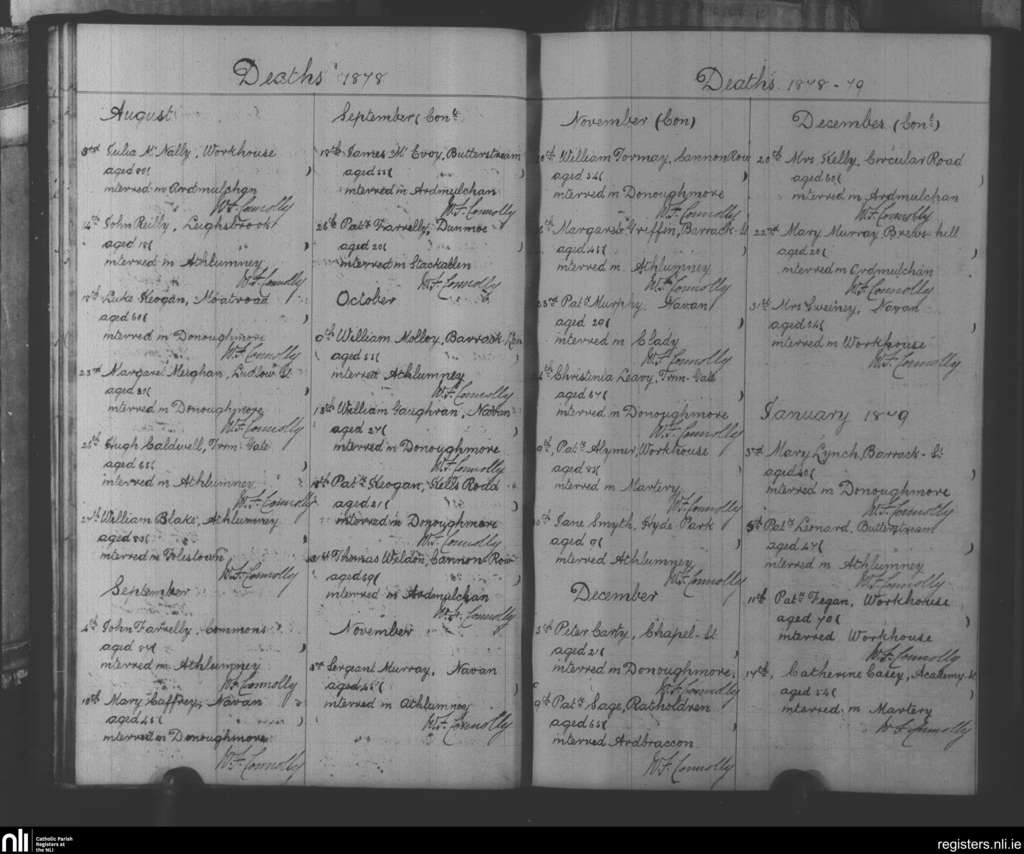 Deaths 1878
August
3rd Julia McNally, Workhouse
aged
interred in Ardmulchan
Wm F. Connolly
John Reilly, Leighsbrook
aged 18
interred in Athlumney
Wm F. Connolly
Luke Keogan, Moatroad
aged 60
interred in Donoughmore
Wm F. Connolly
23rd Margaret Meighan, Ludlow St
aged
interred in Donoughmore
Wm F. Connolly
Hugh Caldwell, Trim-Gate
aged
interred in Athlumney
Wm F. Connolly
William Blake, Athlumney
aged
interred in
Wm F. Connolly
September
John Farrelly Commons
aged
interred in Athlumney
Wm F. Connolly
Mary Caffrey, Navan
aged 45
interred in Donoughmore
Wm F. Connolly
September (Cont.
James McEvoy, Butterstream
aged
interred in Ardmulchan
Wm F. Connolly
Patk Farrelly, Dunmoe
aged 20
interred in Stackallen
Wm F. Connolly
October
William Molloy, Barrack
aged
interred Athlumney
Wm F. Connolly
William Gaughran, Navan
aged 27
interred in Donoughmore
Wm F. Connolly
Patk Keogan, Kells Road
aged 21
interred in Donoughmore
Wm F. Connolly
Thomas Weldon, Cannon-Row
aged 59
interred in Ardmulchan
Wm F. Connolly
November
Sergant Murray, Navan
aged 45
interred in Athlumney
Wm F. Connolly
Deaths 1878-79
November (Con)
William Tormay, Cannon Row
aged
interred in Donoughmore
Wm F. Connolly
Margaret Griffin, Barrack-St
aged
interred in Athlumney
Wm F. Connolly
23rd Patk Murphy Navan
aged 20
interred in Clady
Wm F. Connolly
Christinia Leavy, Trim-Gate
aged 67
interred in Donoughmore
Wm F. Connolly
Patk Aymer, Workhouse
aged
interred in Martery
Wm F. Connolly
Jane Smyth, Hyde Park
aged 9
interred Athlumney
Wm F. Connolly
December
Peter Carty, Chapel-St
aged 21
interred in Donoughmore
Wm F. Connolly
9th Patk Sage, Ratholdren
aged 65
interred Ardbraccan
Wm F. Connolly
December (Cont)
20th Mrs Kelly, Circular Road
aged 60
interred in Ardmulchan
Wm F. Connolly
22nd Mary Murray Brews-hill
aged
interred in Ardmulchan
Wm F. Connolly
31st Mrs Sweiney, Navan
aged
interred in Workhouse
Wm F. Connolly
January 1879
3rd Mary Lynch, Barrack-St
aged
interred in Donoughmore
Wm F. Connolly
Patk Leonard Butterstream
aged 47
interred in Athlumney
Wm F. Connolly
11th Patk Fegan, Workhouse
aged 70
interred Workhouse
Wm F. Connolly
14th Catherine Casey, Academy-St
aged
interred in Martery
Wm F. Connolly
nli
Catholic Parish
Registers at
the NLI
registers.nli.ie